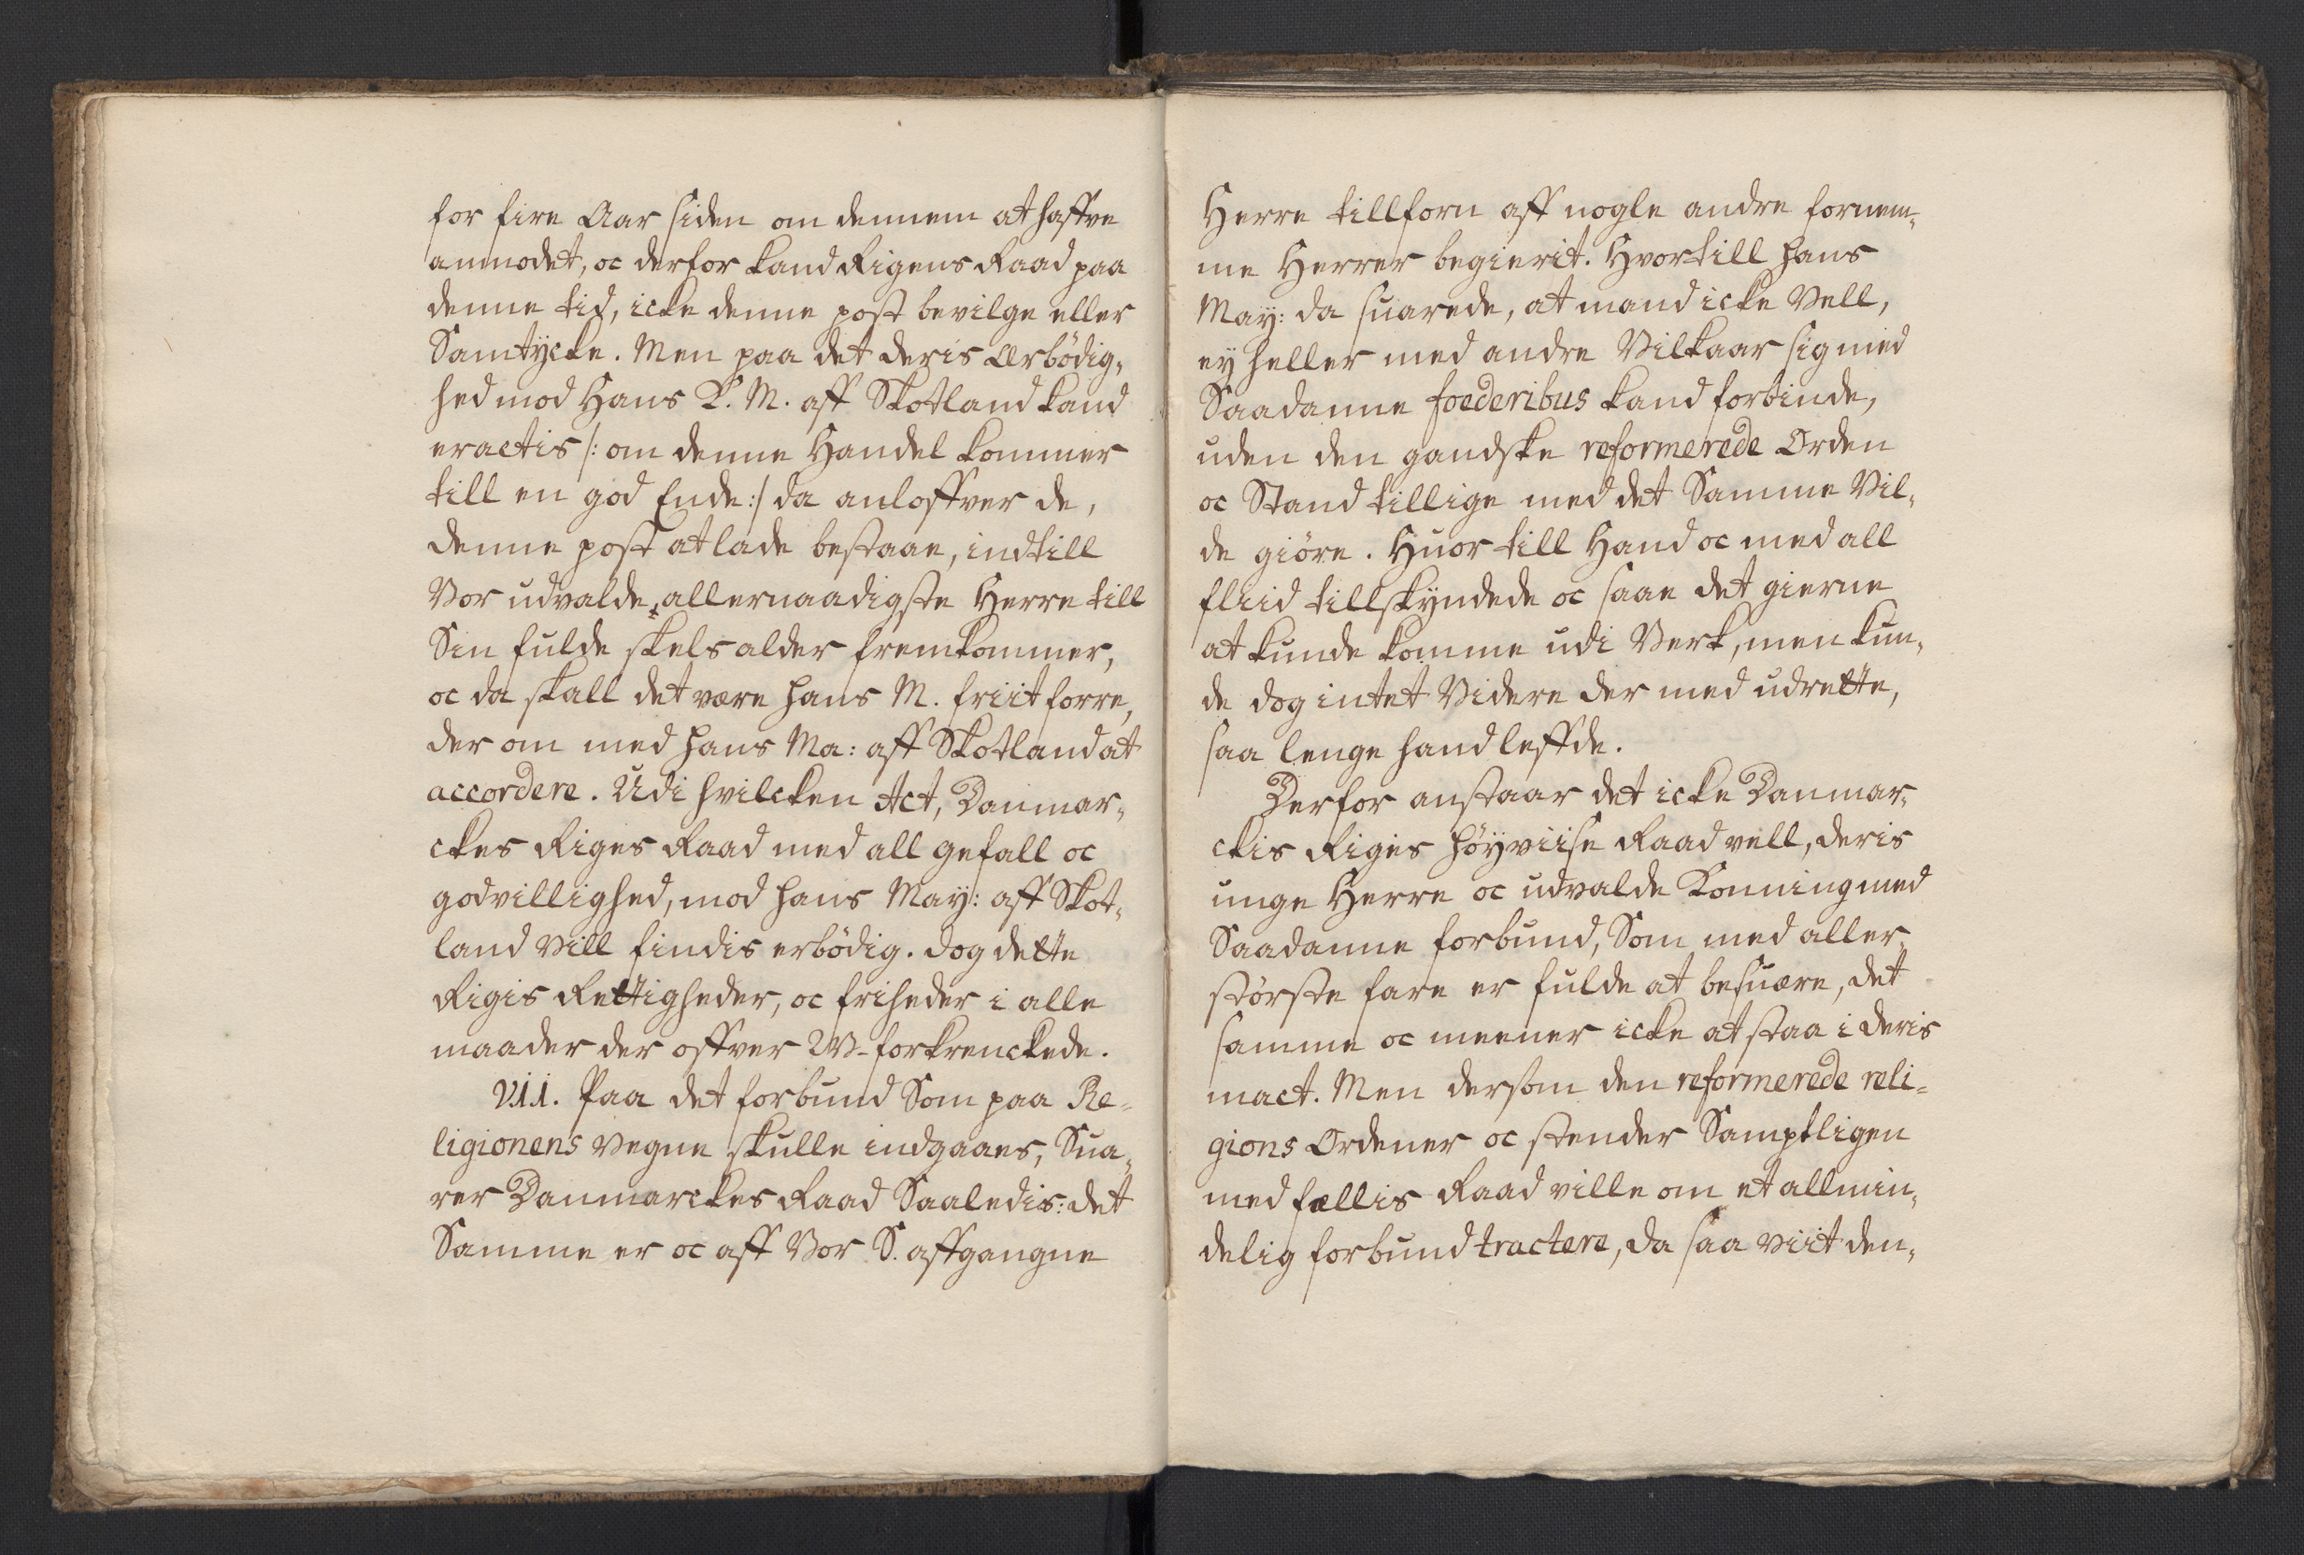 for fire Aar siden om dennem at haffve
anmodet, oc derfor kand Rigens Raad paa
denne tid, icke denne post bevilge eller
Samtycke. Men paa det deris Ærbödig-
hed mod Hans K. M. aff Skotland kand
eractis /: om denne Handel kommer
till en god Ende :/ da anloffver de,
denne post at lade bestaae, indtill
Vor udvalde, allernaadigste Herre till
Sin fulde skels alder fremkommer,
oc da skall det være hans M. friit forre,
der om med hans Ma: aff Skotland at
accordere. Udi hvilcken Act, Danmar-
ckes Riges Raad med all gefall oc
godvillighed, mod hans May: aff Skot-
land Vill findis erbödig. dog dette
Rigis Rettigheder, oc friheder i alle
maader der offver W-forkrenckede.
VII. Paa det forbund Som paa Re-
ligionens Vegne skulle indgaaes, Sua-
rer Danmarckes Raad Saaledis: det
Samme er oc aff Vor S. affgangne
Herre tillforn aff nogle andre fornem-
me Herrer begierit. Hvortill hans
May: da suarede, at mand icke Vell,
ey heller med andre Vilkaar sig med
Saadanne foederibus kand forbinde,
uden den gandske reformerede Orden
oc Stand tillige med det Samme Vil-
de giöre. Huor till Hand oc med all
fliid tillskyndede oc saae det gierne
at kunde komme udi Verk, men kun-
de dog intet Videre der med udrette,
saa lenge hand leffde.
Derfor anstaar det icke Danmar-
ckis Rigis höyviise Raad vell, deris
unge Herre oc udvalde Konning med
Saadanne forbund, Som med aller
störste fare er fulde at besuære, det
samme oc meener icke at staa i deris
mact. Men dersom den reformerede reli-
gions Ordener oc stender Samptligen
med fællis Raad ville om et allmin-
delig forbund tractere, da saa viit den-